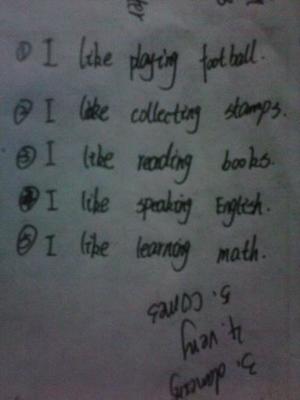 ① I like playing football.
② I like collecting stamps.
③ I like reading books.
④ I like speaking English.
⑤ I like learning math.
3. dancing
4. very
5. comes